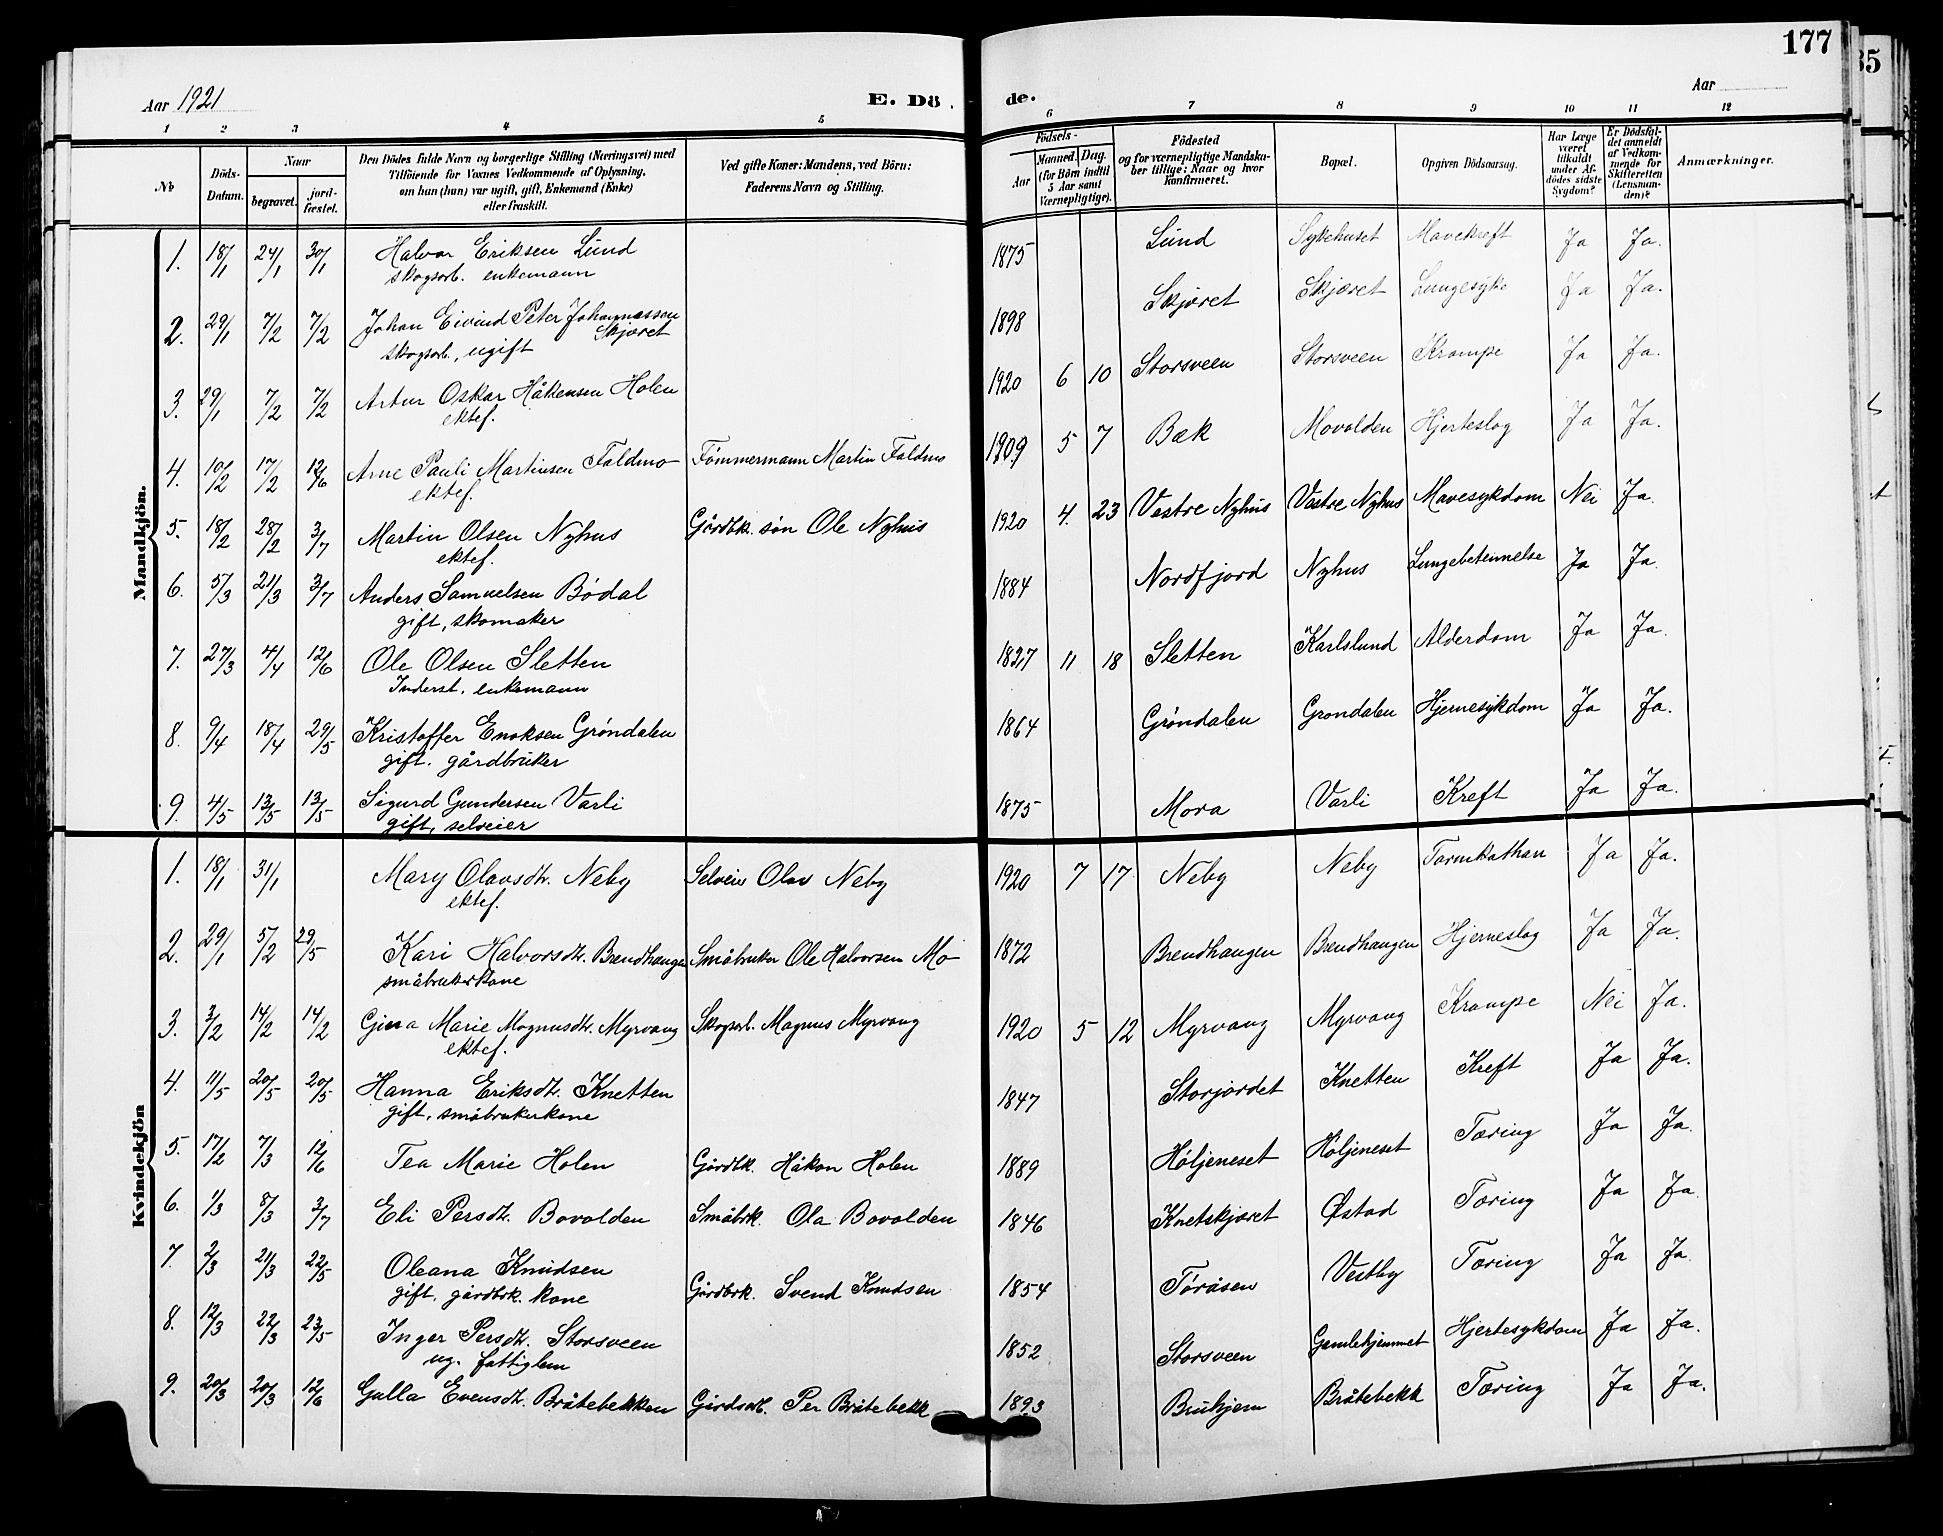 177
35
Aar 1921
E. Dö
de.
Aar
1 2 3 4 5 6 7 8 9 10 11 12
No
Döds-Datum.
Naar
begravet.
jord-fæstet.
Den Dödes fulde Navn og borgerlige Stilling (Næringsvei) med
Tilföiende for Voxnes Vedkommende af Oplysning,
om han (hun) var ugift, gift, Enkemand (Enke)
eller fraskilt.
Ved gifte Koner: Mandens, ved Börn:
Faderens Navn og Stilling.
Födsels-
Aar
Maaned. Dag.
(for Börn indtil
5 Aar samt
Værnepligtige).
Födested
og for værnepligtige Mandska-
ber tillige: Naar og hvor
konfirmeret.
Bopæl.
Opgiven Dödsaarsag.
Har Læge
været
tilkaldt
under Af-
dödes sidste
Sygdom?
Er Dödsfal-
det anmeldt
af Vedkom-
mende for
Skifteretten
(Lensman-
den)?
Anmærkninger.
Mandkjön.
1. 18/1 24/1 30/1 Halvor Eriksen Lund 1875 Lund Sykehuset Mavekreft Ja Ja.
skogsarb. enkemann
2. 29/1 7/2 7/2 Johan Eivind Peter Johannassen 1898 Skjæret Skjæret Lungesyke Ja Ja.
Skjæret
skogsarb., ugift
3. 29/1 7/2 7/2 Artur Oskar Håkensen Holen 1920 6 10 Storsveen Storsveen Krampe Ja Ja.
ektef.
4. 10/2 17/2 12/6 Arne Pauli Martinsen Faldmo Tømmermann Martin Faldmo 1909 5 7 Bæk Movolden Hjerteslag Ja Ja.
ektef.
5. 18/2 28/2 3/7 Martin Olsen Nyhus Gårdbk. søn Ole Nyhus 1920 4. 23 Vestre Nyhus Vestre Nyhus Mavesykdom Nei Ja.
ektef.
6. 5/3 21/3 3/7 Anders Samuelsen Bødal 1884 Nordfjord Nyhus Lungebetennelse Ja Ja.
gift, skomaker
7. 27/3 4/4 12/6 Ole Olsen Sletten 1827 11 18 Sletten Karlslund Alderdom Ja Ja.
Inderst. enkemann
8. 9/4 18/4 29/5 Kristoffer Enoksen Grøndalen 1864 Grøndalen Grøndalen Hjernesykdom Ja Ja.
gift. gårdbruker
9. 4/5 13/5 13/5 Sigurd Gundersen Varli 1875 Mora Varli Kreft Ja Ja.
gift, selveier
Kvindekjön
1. 18/1 31/1 Mary Olavsdtr. Neby Selveier Olav Neby 1920 7 17 Neby Neby Tarmkathar Ja Ja.
ektef.
2. 29/1 5/2 29/5 Kari Halvorsdtr. Brendhaugen Småbruker Ole Halvorsen Mo 1872 Brendhaugen Brendhaugen Hjerneslag Ja Ja.
småbrukerkone
3. 3/2 14/2 14/2 Gina Marie Magnusdtr. Myrvang Skogsarb. Magnus Myrvang 1920 5 12 Myrvang Myrvang Krampe Nei Ja.
ektef.
4. 11/5 20/5 20/5 Hanna Eriksdtr. Knetten 1847 Storjordet Knetten Kreft Ja Ja.
gift, småbrukerkone
5. 17/2 7/3 12/6 Tea Marie Holen Gårdbk. Håkon Holen 1889 Høljeneset Høljeneset Tæring Ja Ja.
6. 1/3 8/3 3/7 Eli Persdtr. Bovolden Småbrk. Ola Bovolden 1846 Knetskjæret Østad Tæring Ja Ja
7. 2/3 21/3 22/5 Oleana Knudsen Gårdbrk. Svend Knudsen 1854 Føråsen Vestby Tæring Ja Ja.
gift. gårdbrk. kone
8. 12/3 22/3 23/5 Inger Persdtr. Storsveen 1852 Storsveen Gamlehjemmet Hjertesykdom Ja Ja.
ug. fattiglem
9. 20/3 20/3 12/6 Gulla Evensdtr. Bråtebekken Gårdsarb. Per Bråtebekk 1893 Bruhjem Bråtebekk Tæring Ja Ja.